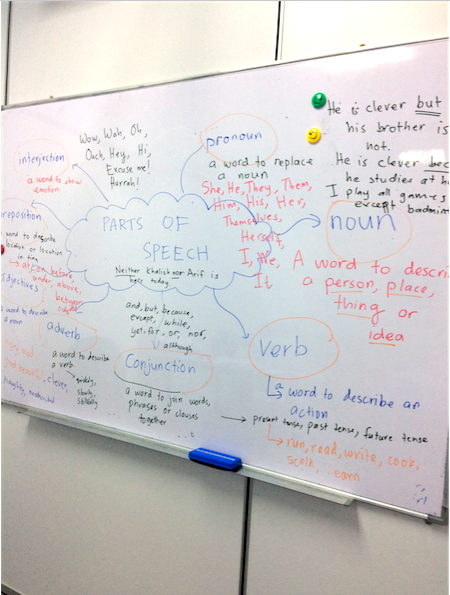 Wow, Wah, Oh,
Ouch, Hey, Hi,
Excuse me!
Hurrah!
interjection
a word to show
emotion
pronoun
a word to replace
a noun
She, He, They, Them,
Him, His, Her,
Themselves,
Herself,
I, We,
It
He is clever but
his brother is
not.
He is clever bec
he studies at h
I play all games
except badmin
noun
A word to descri
a person, place,
thing or
idea
PARTS OF
SPEECH
Neither Khalish nor Arif is
here today
reposition
word to describe
location or location
in time
at, on, before,
under, above,
between
djectives
a word to describe
a noun
clever,
naughty,
adverb
a word to describe
a verb
quickly,
slowly,
skilfully
and, but, because,
except, while,
yet, for, or, nor,
although
Conjunction
a word to join words,
phrases or clauses
together
verb
a word to describe an
action
present tense, past tense, future tense
run, read, write, cook,
scold, earn